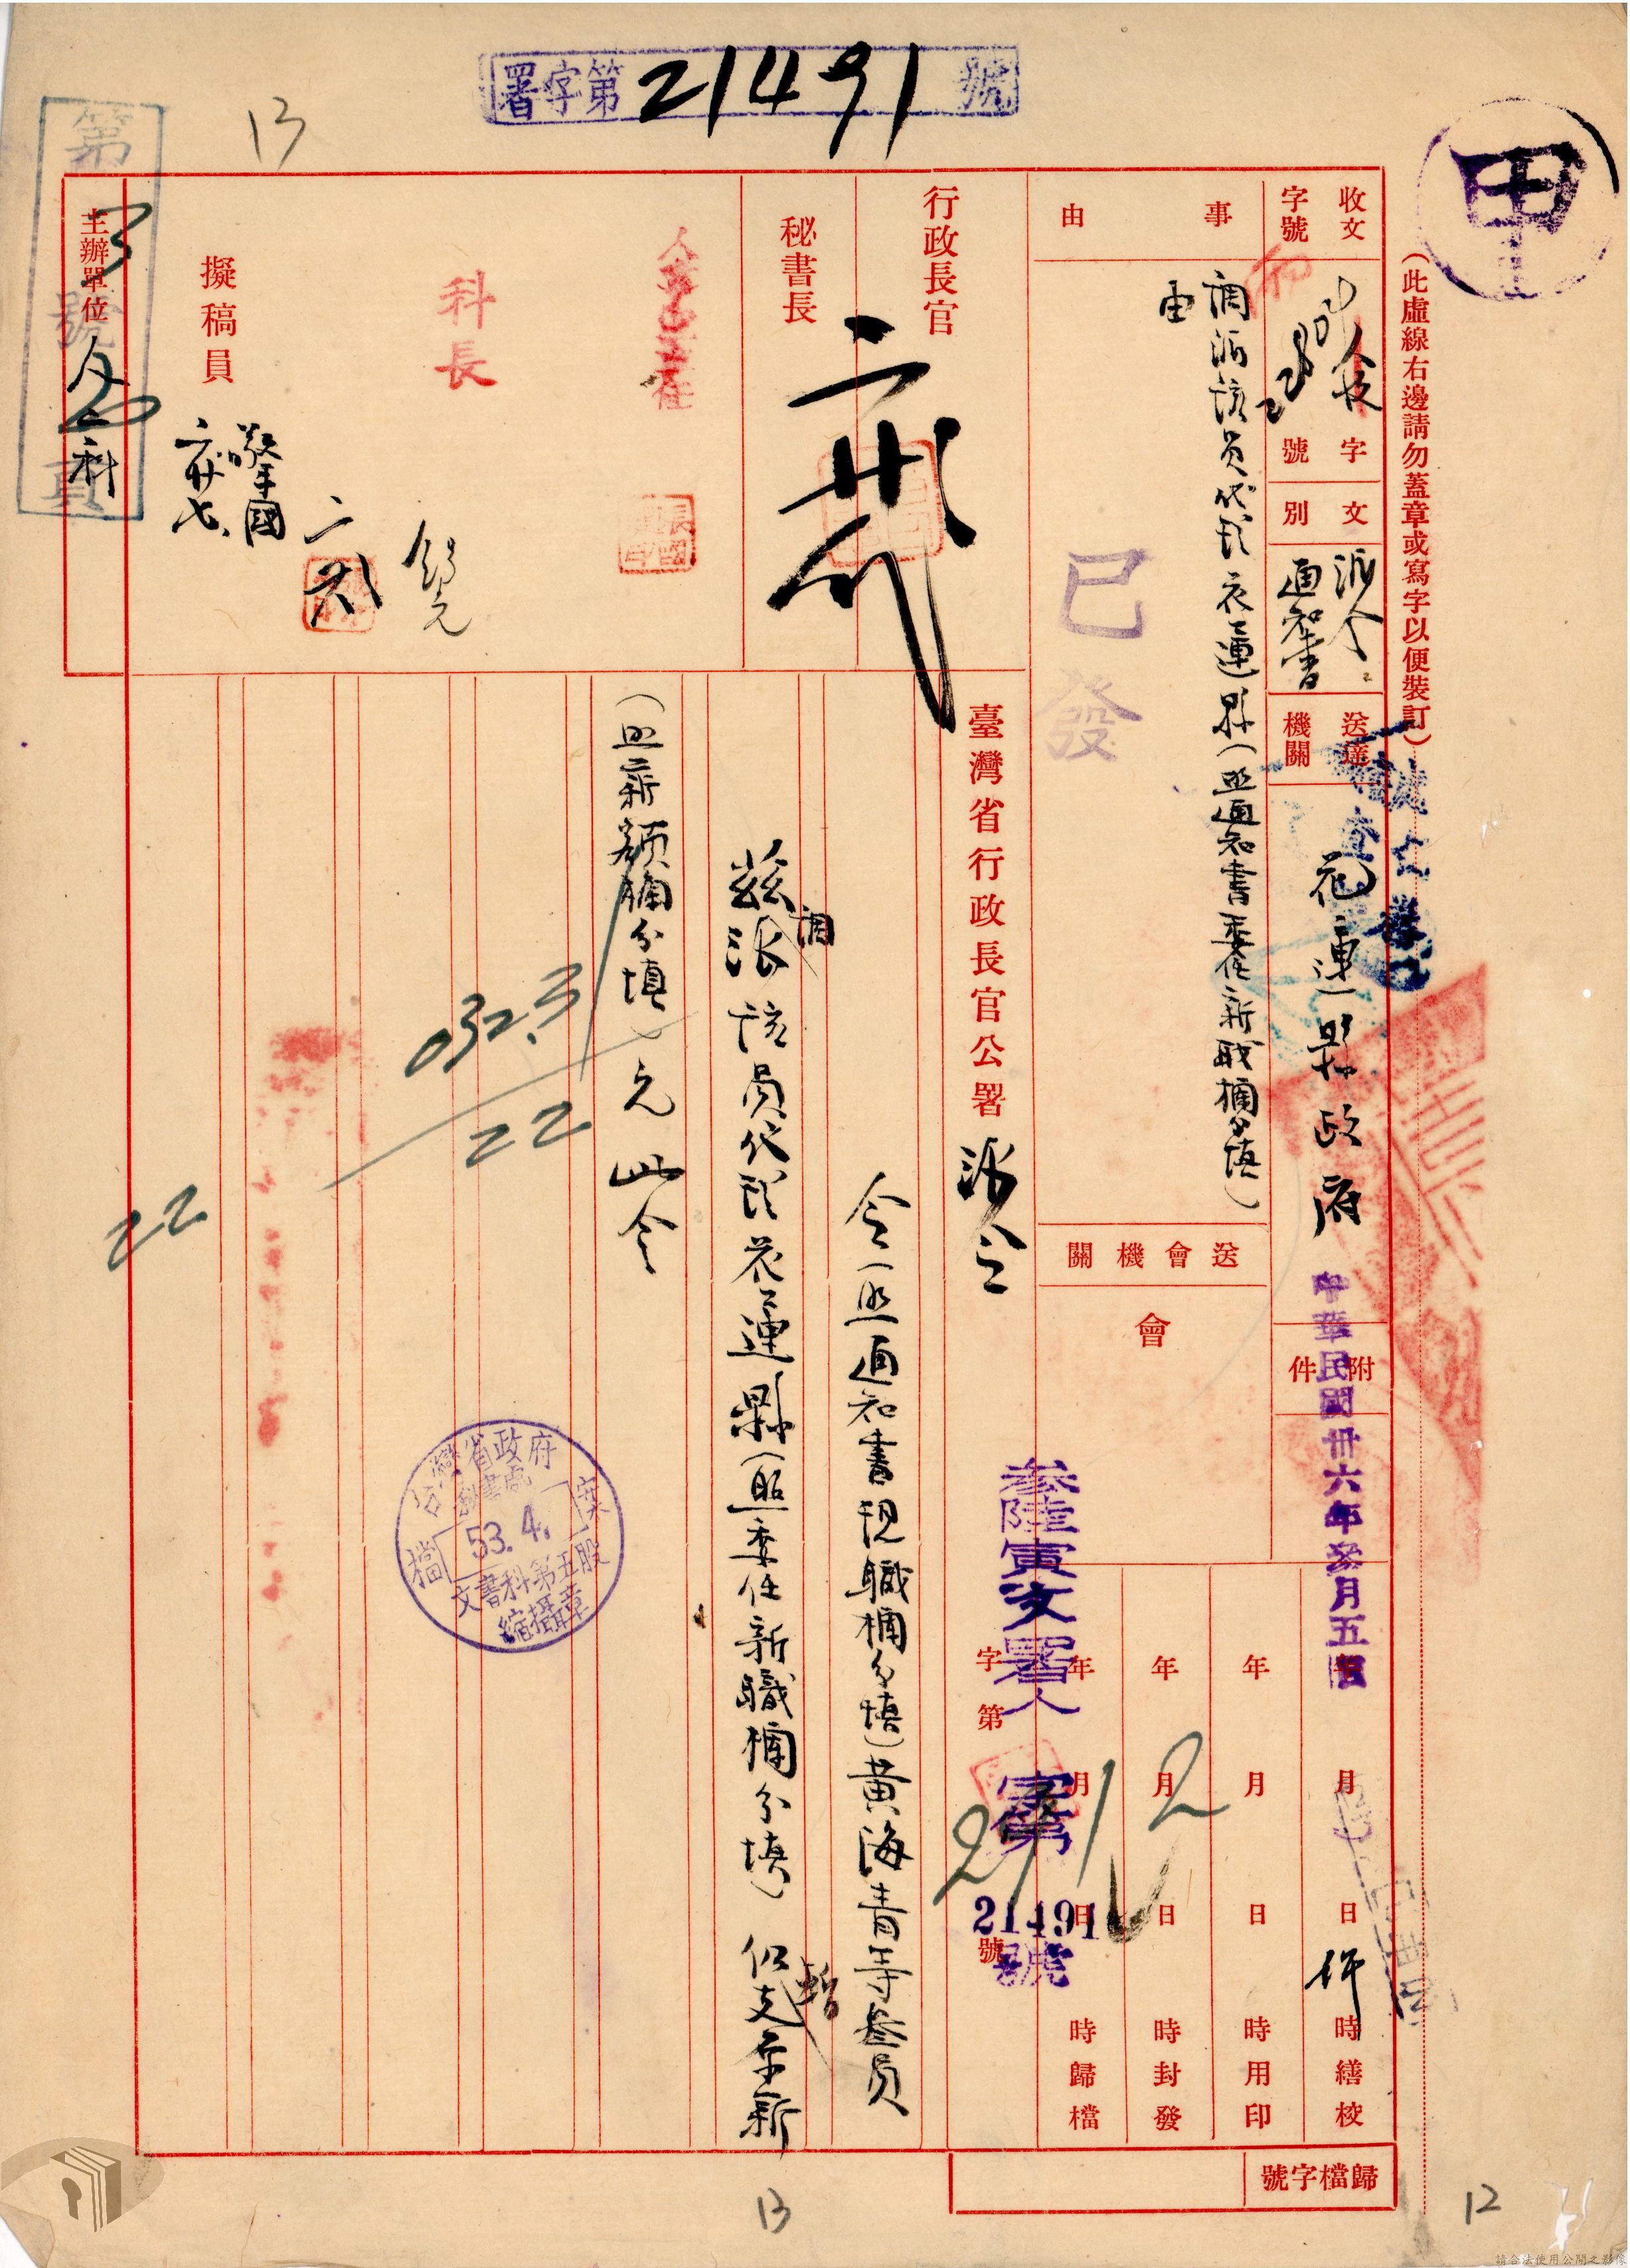 署字第21491號
甲
(此虛線右邊請勿蓋章或寫字以便裝訂)
收文
字號
字
號
文別
派令
通知書
送達機關
花蓮縣政府
附件
事由
調派該員代理花蓮縣(照通知書委任新職欄分填)
由
已發
送會機關
會
中華民國卅六年叁月五日
年 月 日 時繕校
年 月 日 時用印
年 月 日 時封發
年 月 日 時歸檔
行政長官
秘書長
人事室主任
科長
擬稿員
擎國
主辦單位
人二科
第
號
頁
臺灣省行政長官公署 派令
參陸寅 署人
字第
21491
號
令(照通知書現職欄分填)黃海青等叁員
茲調派該員代理花蓮縣(照委任新職欄分填)仍暫支原薪
(照薪額欄分填)元 此令
032.3
22
22
台灣省政府
秘書處
檔案
53.4.
文書科第五股
縮攝章
歸檔字號
13
13
12
請合法使用公開之影像